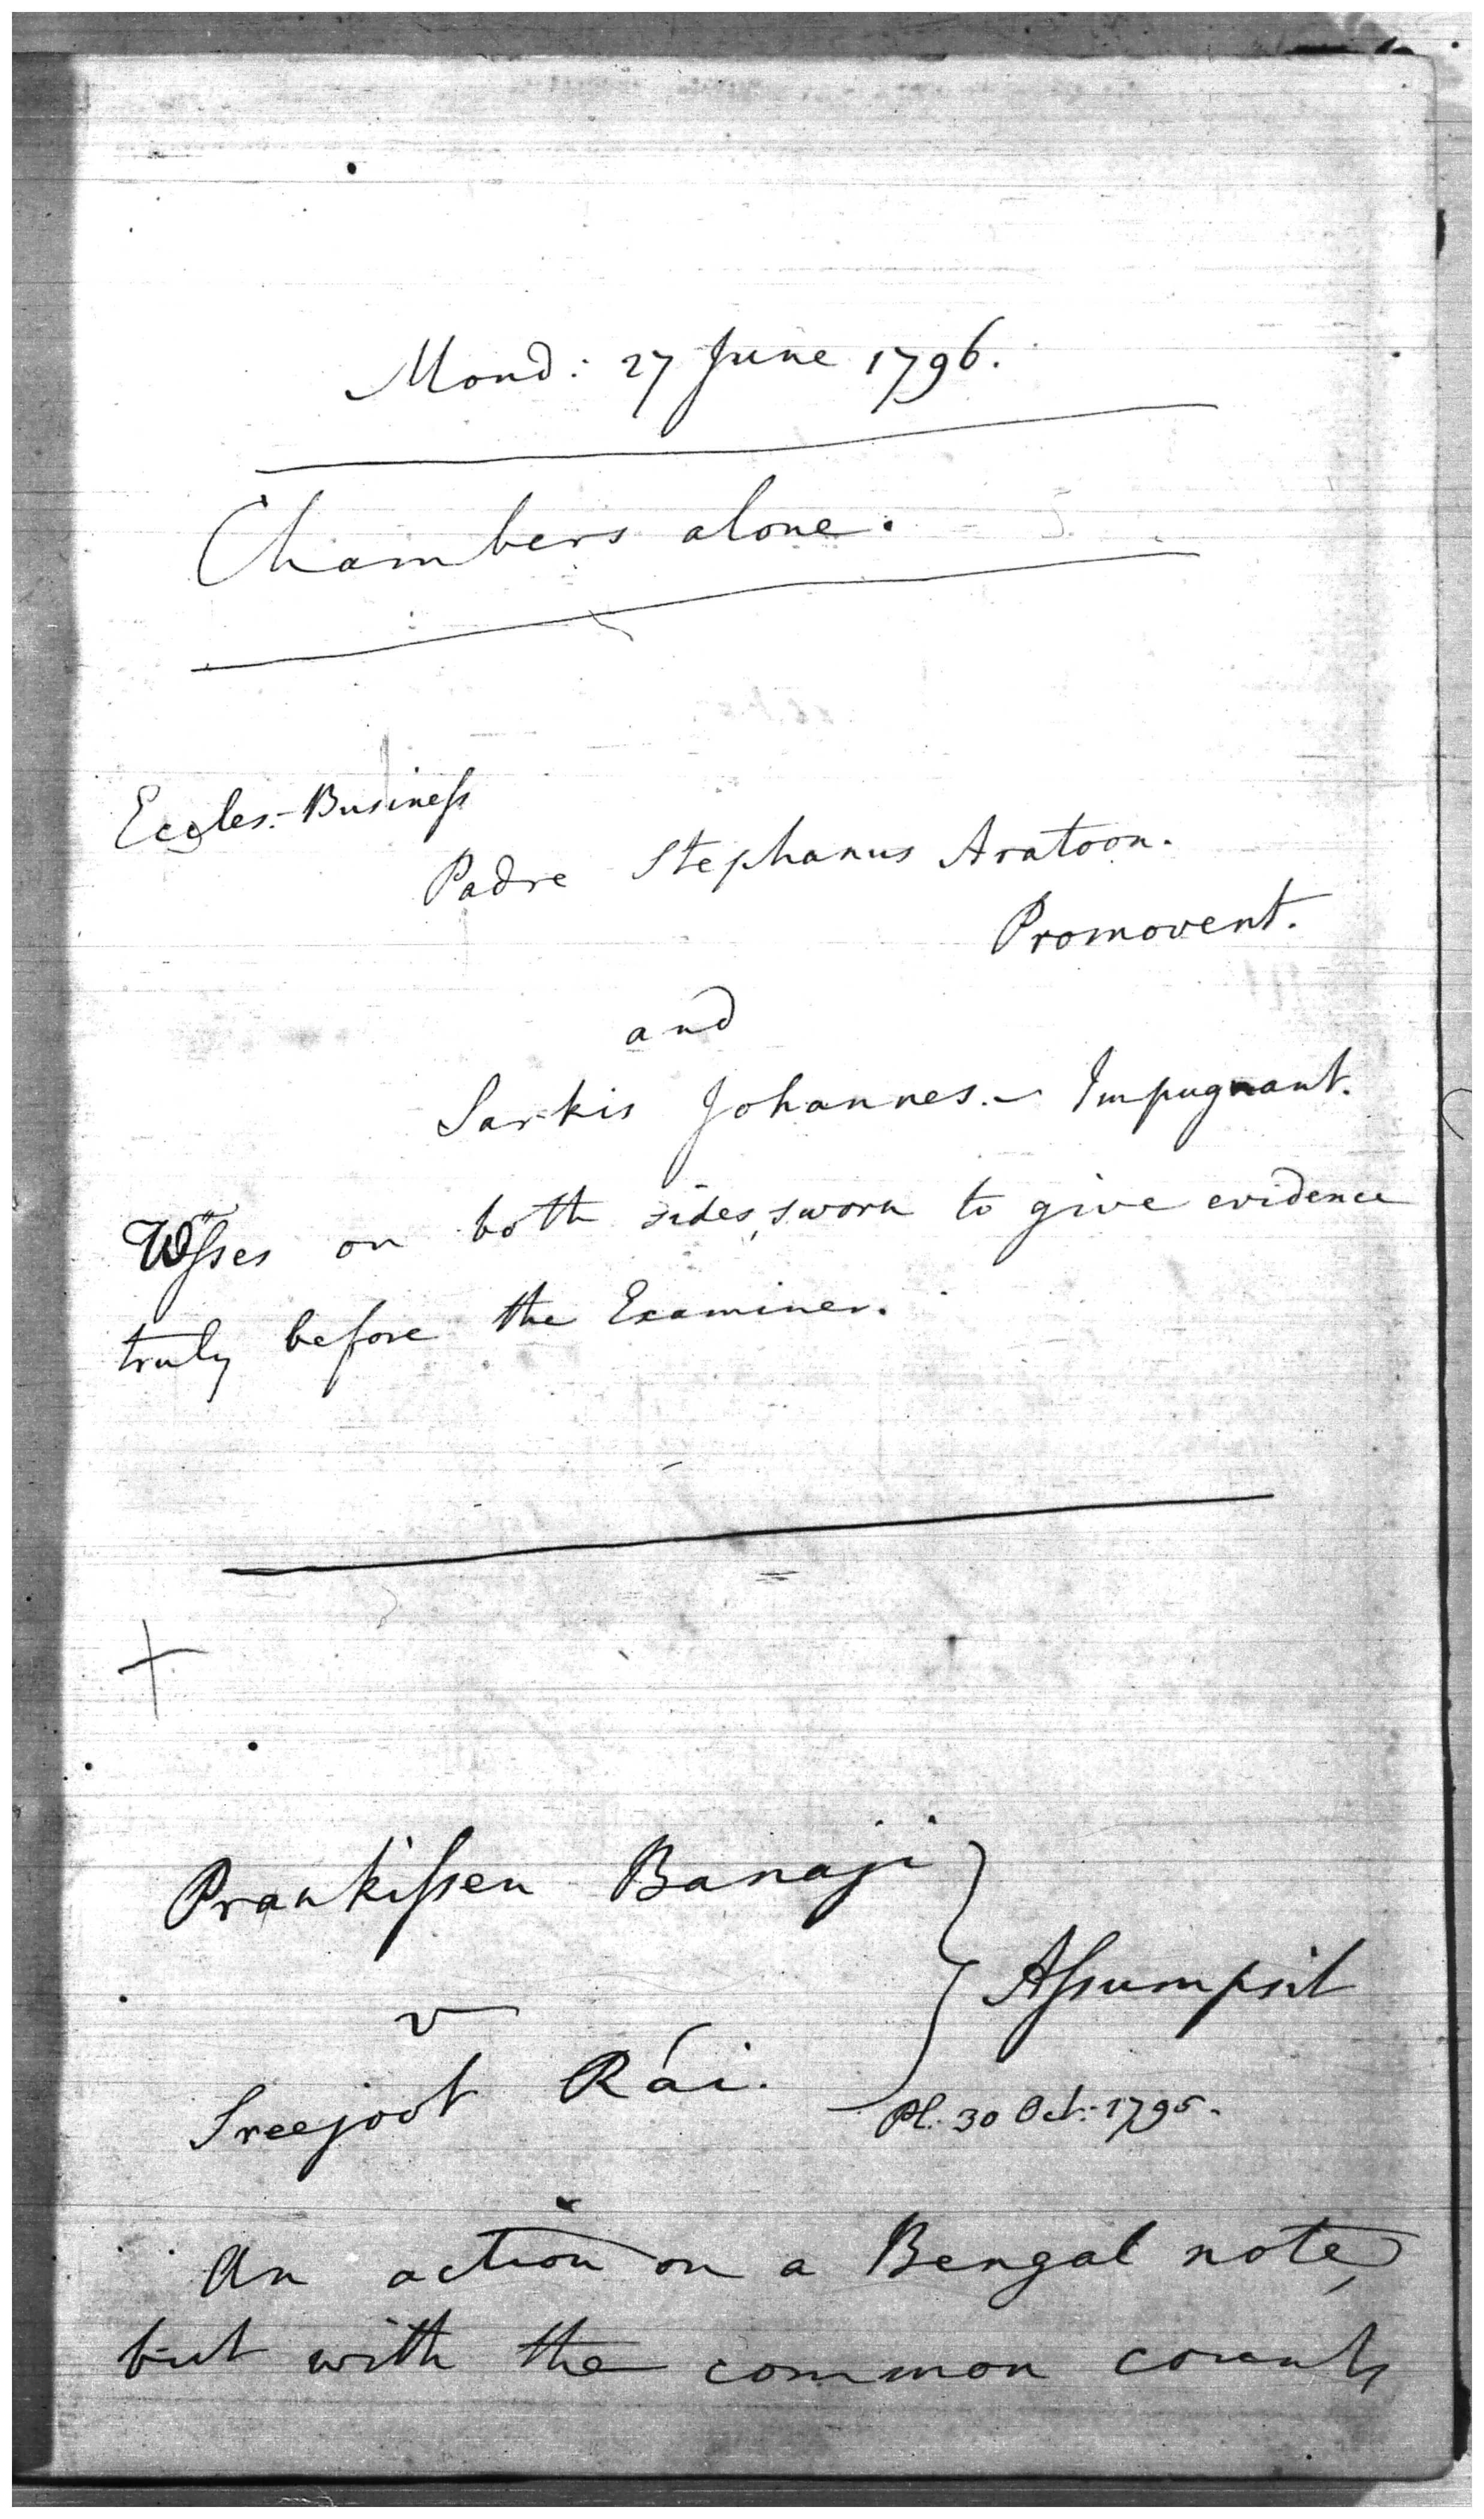 Mond: 27 June 1796.
Chambers alone.
Eccles:- Business
Padre Stephanus Aratoon.
Promovent.
and
Sarkis Johannes. - Impugnant.
Wsses on both sides, sworn to give evidence
truly before the Examiner.
+
Prankissen Banaji
v
Sreejoot Rái.
Assumpsit
Pl. 30 Oct: 1795.
An action on a Bengal note,
but with the common counts